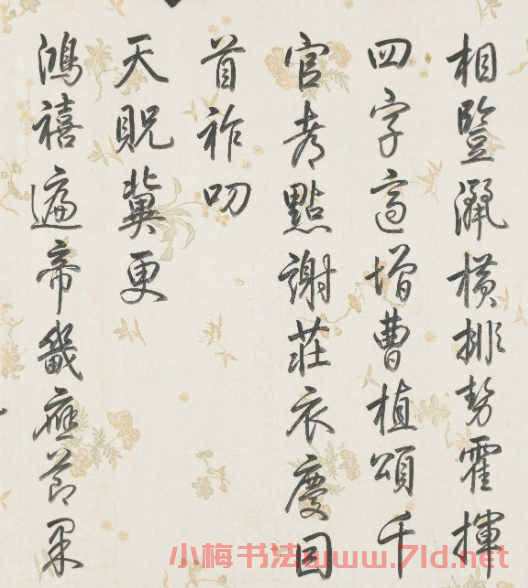 相豎灑橫排勢霍揮
四字適增曹植頌千
官點謝莊衣慶因
首祚叨
天貺冀更
鴻禧遍帝畿應節果
小梅书法www.7ld.net